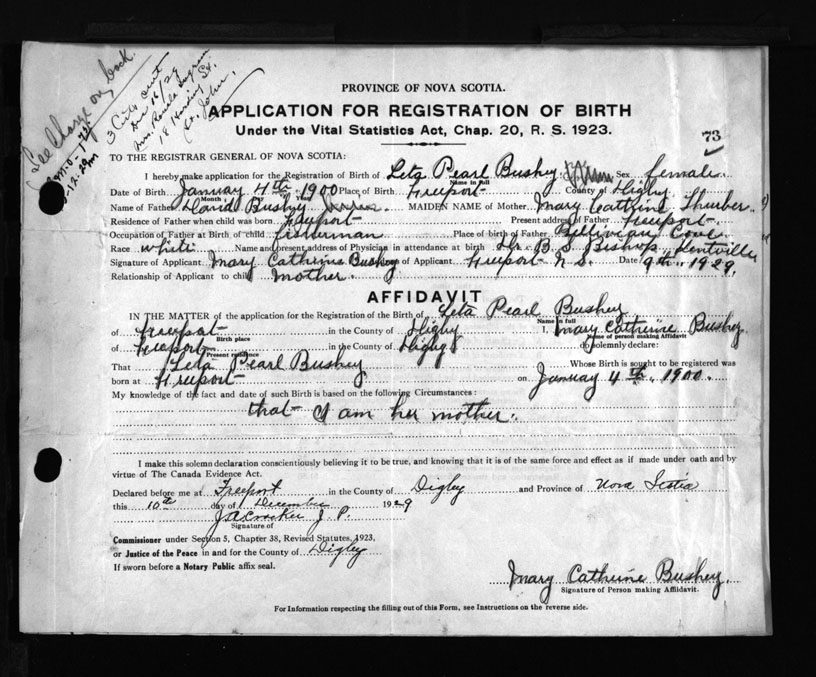 See Change on back.
3 Cert sent
Dec 16/29
Mrs.
18 Harding St.
St. John.
PROVINCE OF NOVA SCOTIA.
APPLICATION FOR REGISTRATION OF BIRTH
Under the Vital Statistics Act, Chap. 20, R. S. 1923.
73
TO THE REGISTRAR GENERAL OF NOVA SCOTIA:
I hereby make application for the Registration of Birth of Leta Pearl Bushey Sex female
Name in full
Date of Birth January 4th 1900 Place of Birth Freeport County of Digby
Month Year
Name of Father David Bushey MAIDEN NAME of Mother Mary Cathrine Thurber
Residence of Father when child was born Freeport Present address of Father Freeport
Occupation of Father at Birth of child fisherman Place of birth of Father Cove
Race white Name and present address of Physician in attendance at birth Dr. B. S. Bishop Kentville
Signature of Applicant Mary Cathrine Bushey of Applicant Freeport N.S. Date 9th 1929.
Relationship of Applicant to child mother.
AFFIDAVIT
IN THE MATTER of the application for the Registration of the Birth of Leta Pearl Bushey
Name in full
of Freeport in the County of Digby I, Mary Catherine Bushey
Birth place Name of person making Affidavit
of Freeport in the County of Digby do solemnly declare:
Present residence
That Leta Pearl Bushey Whose Birth is sought to be registered was
born at Freeport on January 4th. 1900.
My knowledge of the fact and date of such Birth is based on the following Circumstances:
that I am her mother.
I make this solemn declaration conscientiously believing it to be true, and knowing that it is of the same force and effect as if made under oath and by
virtue of The Canada Evidence Act.
Declared before me at Freeport in the County of Digby and Province of Nova Scotia
this 10th day of December 1929
J. P.
Signature of
Commissioner under Section 5, Chapter 38, Revised Statutes, 1923,
or Justice of the Peace in and for the County of Digby
If sworn before a Notary Public affix seal.
Mary Cathrine Bushey.
Signature of Person making Affidavit.
For Information respecting the filling out of this Form, see Instructions on the reverse side.